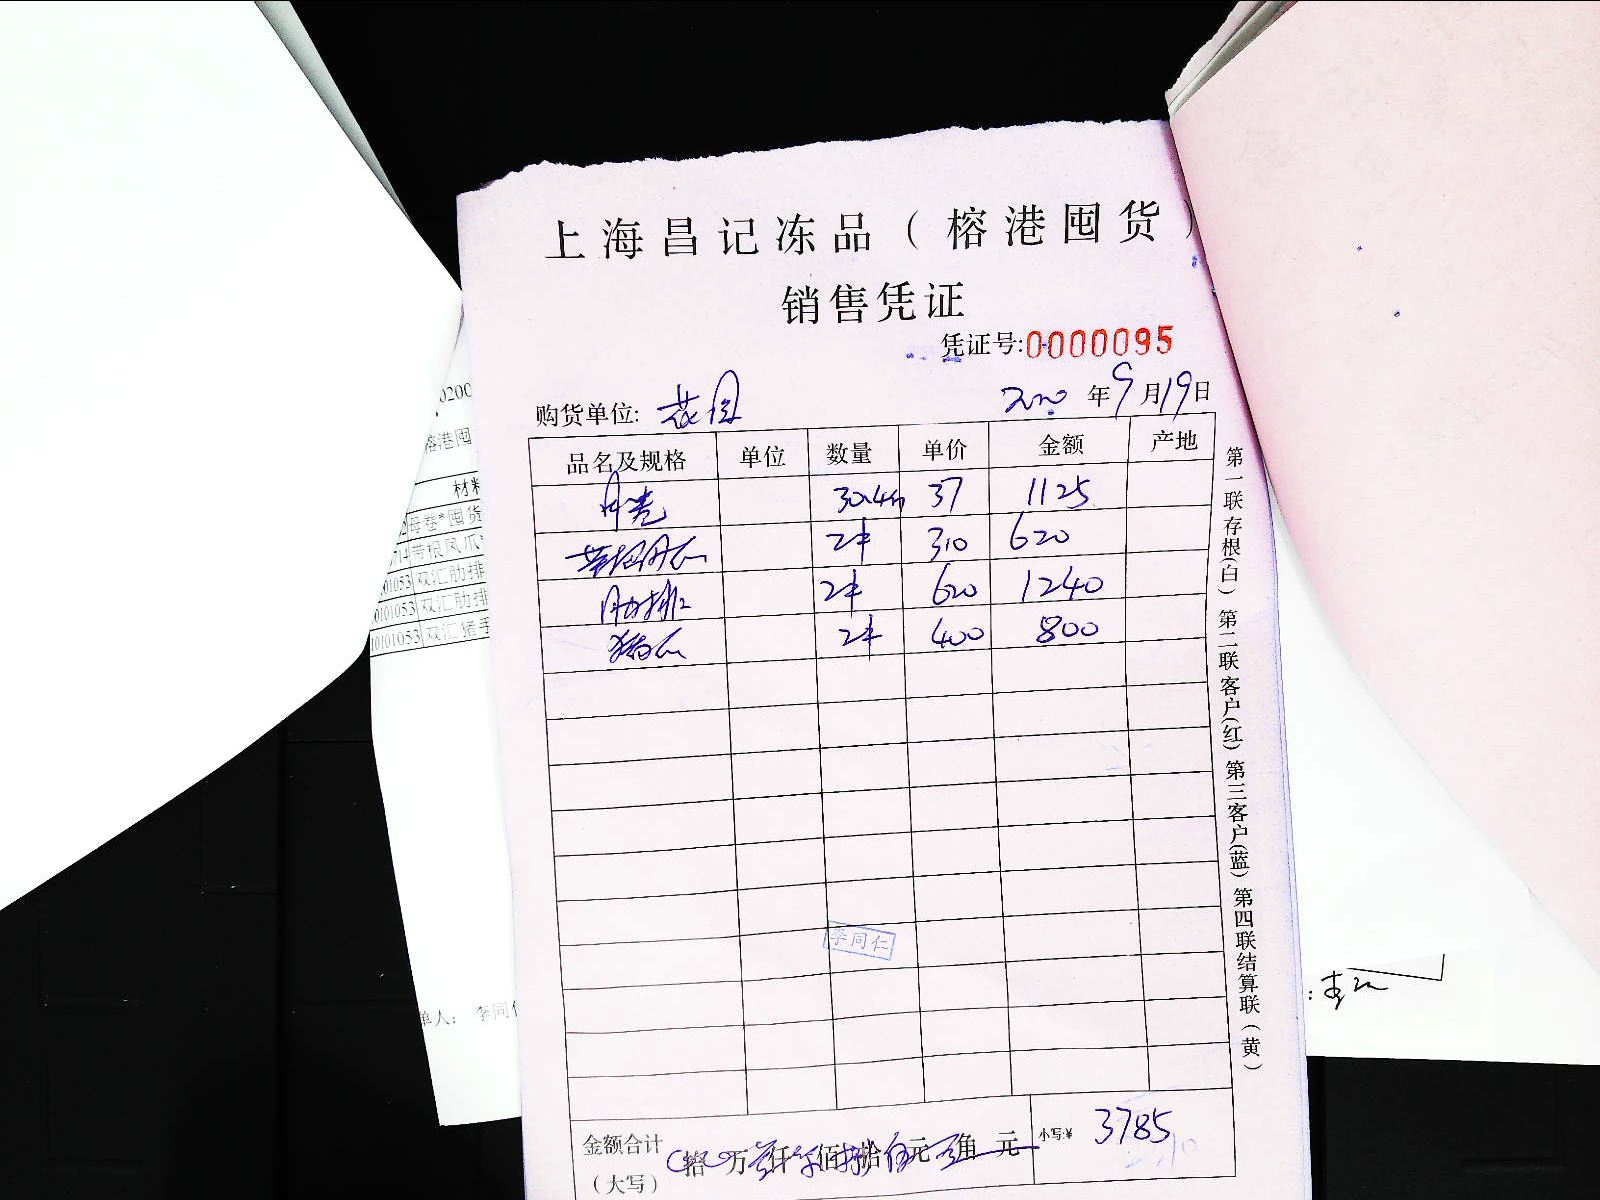 上海昌记冻品（榕港囤货）
销售凭证
凭证号:0000095
购货单位: 花园 2020年9月19日
品名及规格 单位 数量 单价 金额 产地
30.4 37 1125
2件 310 620
肋排 2件 620 1240
猪 2件 400 800
李同仁
金额合计 拾 万 仟 佰 拾 元 角 元 小写:¥ 3785
（大写）
第一联存根(白) 第二联客户(红) 第三客户(蓝) 第四联结算联(黄)
0200
榕港囤
材料
母卷*囤货
带根凤爪
0101053 双汇肋排
0101053 双汇肋排
10101053 双汇猪手
单人: 李同仁